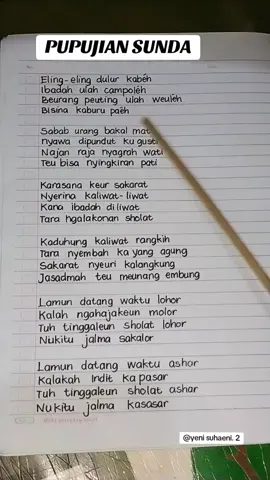 PUPUJIAN SUNDA
Eling-eling dulur kabéh
Ibadah ulah campoléh
Beurang peuting ulah weuléh
Bisina kaburu paéh
Sabab urang bakal mat
nyawa dipundut ku gusti
Najan raja nyagrah wati
Teu bisa nyingkiran pati
Karasana keur sakarat
Nyerina kaliwat-liwat
Kana ibadah diliwat
Tara ngalakonan sholat
Kaduhung kaliwat rangkih
Tara nyembah ka yang agung
Sakarat nyeuri kalangkung
Jasadmah teu meunang embung
Lamun datang waktu lohor
Kalah ngahajakeun molor
Tuh tinggaleun sholat lohor
Nukitu jalma sakalor
Lamun datang waktu ashar
Kalakah indit ka pasar
Tuh tinggaleun sholat ashar
Nukitu jalma kasasar
@yeni suhaeni. 2